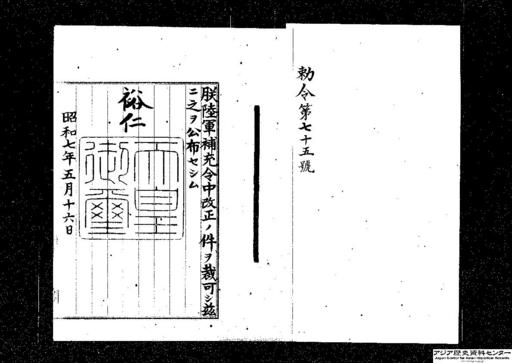 勅令第七十五號
朕陸軍補充令中改正ノ件ヲ裁可シ茲
ニ之ヲ公布セシム
裕仁
天皇
御璽
昭和七年五月十六日
アジア歴史資料センター
Japan Center for Asian Historical Records